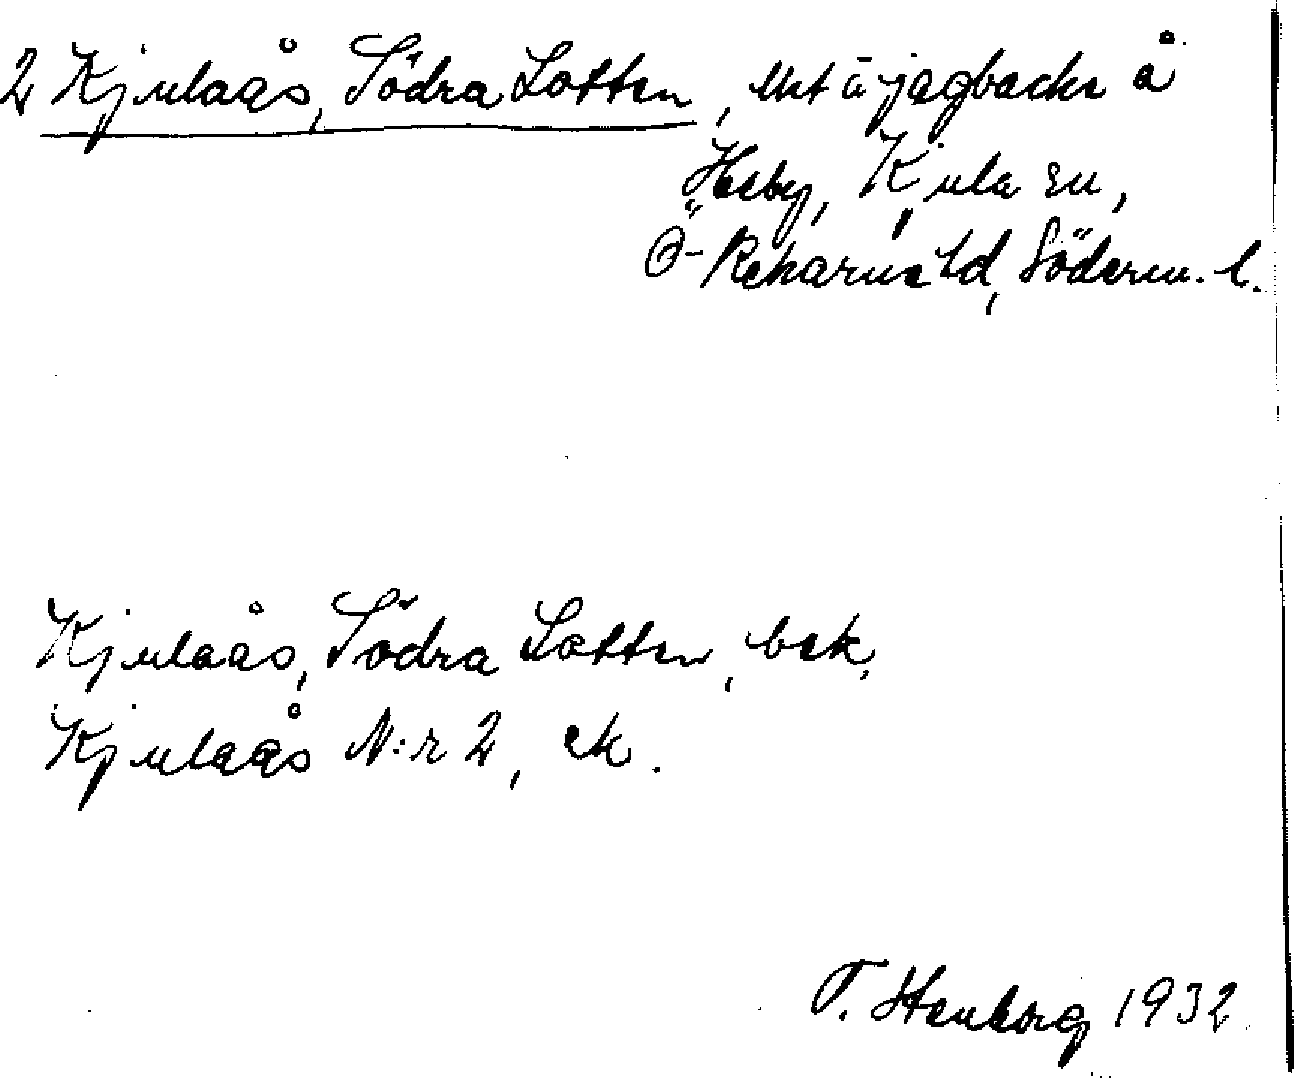 2 Kjulaås, Södra Lotten, utst å jagbacke å
Heby, Kjula sn,
Ö-Rekarne hd, Söderm. l.
Kjulaås, Södra Lotten, bek,
Kjulaås N:r 2, ek.
T. Stenborg 1932